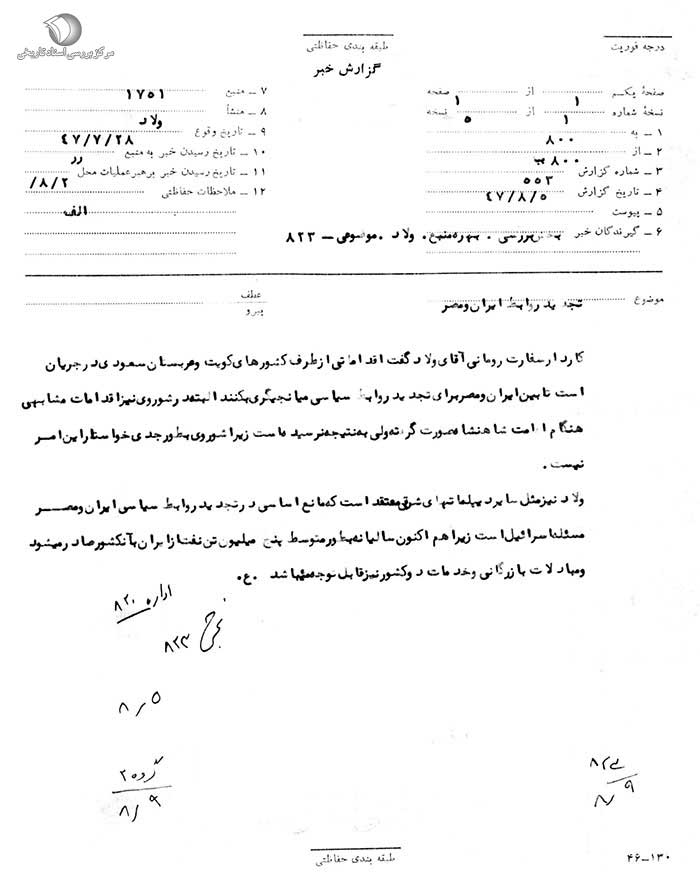 مرکز بررسی اسناد تاریخی
درجه فوریت
طبقه بندی حفاظتی
گزارش خبر
صفحهٔ یکم ۱ از ۱ صفحه
نسخهٔ شماره ۱ از ۵ نسخه
۱ – به ۸۰۰
۲ – از ۸۰۰ ب
۳ – شماره گزارش ۵۵۳
۴ – تاریخ گزارش ۴۷/۸/۵
۵ – پیوست
۶ – گیرندگان خبر بخش بررسی . بهره منبع . ولاد . موضوعی – ۸۲۳
۷ – منبع ۱۷۵۱
۸ – منشأ ولاد
۹ – تاریخ وقوع ۴۷/۷/۲۸
۱۰ – تاریخ رسیدن خبر به منبع رر
۱۱ – تاریخ رسیدن خبر برهبر عملیات محل /۸/۲
۱۲ – ملاحظات حفاظتی
الف
موضوع تجدید روابط ایران و مصر
عطف
پیرو
کاردار سفارت رومانی آقای ولاد گفت اقداماتی از طرف کشورهای کویت و عربستان سعودی در جریان
است تا بین ایران و مصر برای تجدید روابط سیاسی میانجیگری بکنند البته در شوروی نیز اقدامات مشابهی
هنگام اقامت شاهنشاه صورت گرفته ولی به نتیجه نرسیده است زیرا شوروی بطور جدی خواستار این امر
نیست .
ولاد نیز مثل سایر دیپلماتهای شرق معتقد است که مانع اساسی در تجدید روابط سیاسی ایران و مصر
مسئله اسرائیل است زیرا هم اکنون سالیانه بطور متوسط پنج میلیون تن نفت از ایران بآنکشور صادر میشود
و مبادلات بازرگانی و خدمات دو کشور نیز قابل توجه میباشد . ع.
اداره ۸۲۰
۸۲۳
۸/۵
گروه ۲
۸/۹
۸/۹
طبقه بندی حفاظتی
۴۶–۱۳۰